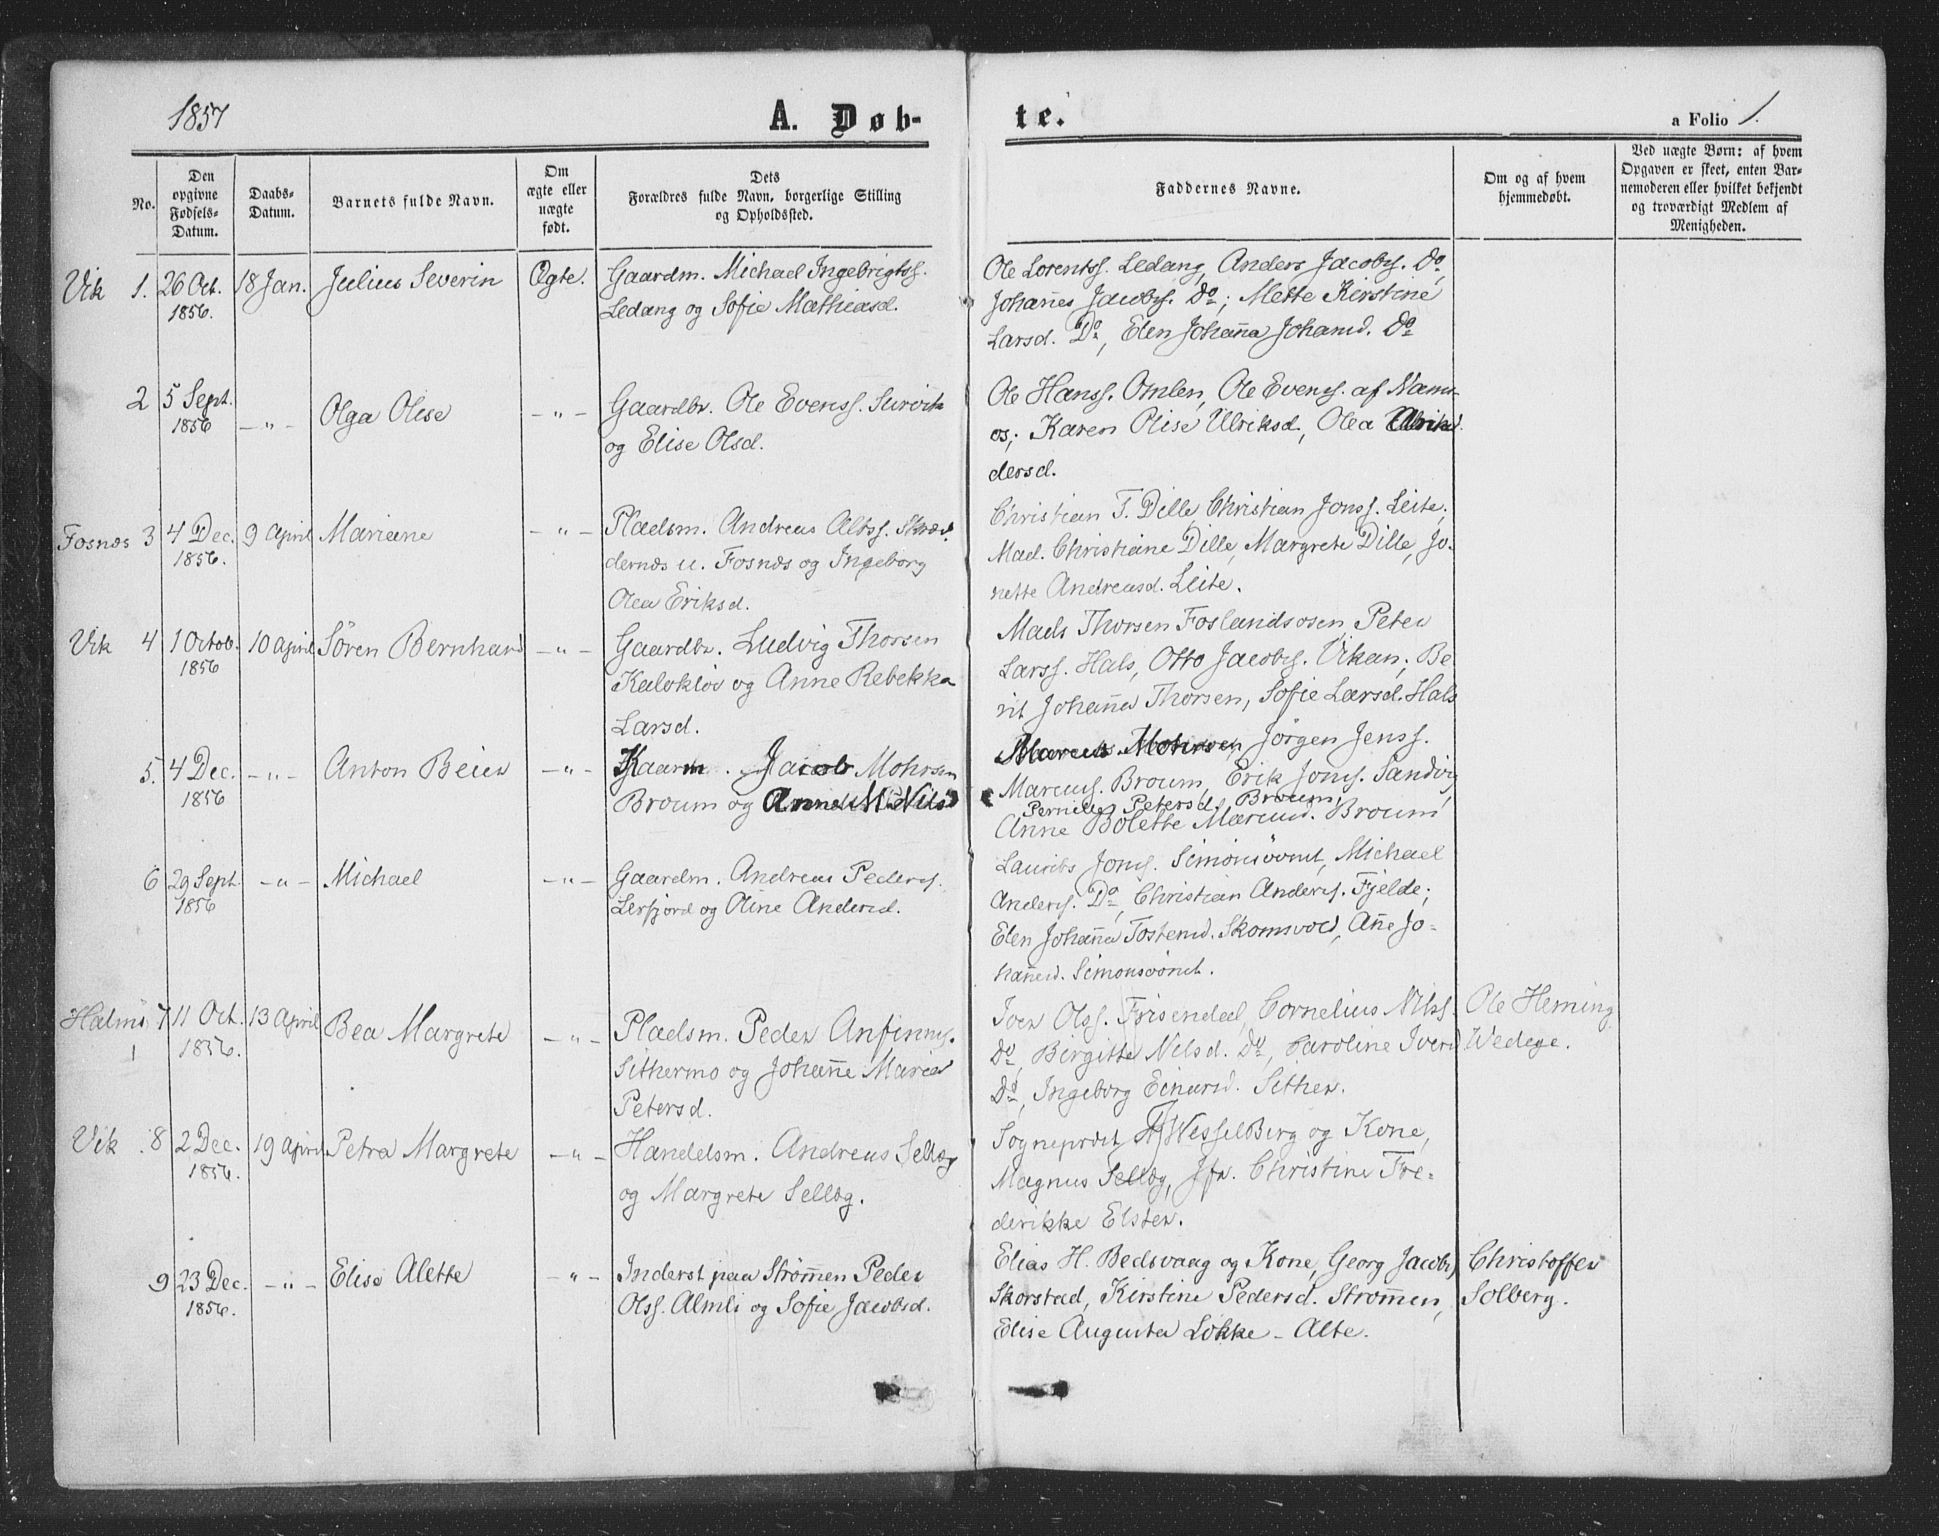 1857
A. Døb-
te.
a Folio 1.
No.
Den opgivne Fødsels-Datum.
Daabs-Datum.
Barnets fulde Navn.
Om ægte eller uægte født.
Dets Forældres fulde Navn, borgerlige Stilling og Opholdssted.
Faddernes Navne.
Om og af hvem hjemmedøbt.
Ved uægte Børn: af hvem Opgaven er skeet, enten Barnemoderen eller hvilket bekjendt og troværdigt Medlem af Menigheden.
Vik 1. 26 Oct. 1856. 18 Jan. Julius Severin Ægte.
Gaardm. Michael Ingebrigtss.
Ledang og Sofie Mathiasd.
Ole Lorentss. Ledang, Anders Jacobs. Do,
Johañes Jacobs. Do; Mette Kerstine
Larsd. Do, Elen Johaña Johansd. Do
2 5 Sept. 1856 -"- Olga Olise -"-
Gaardbr. Ole Evenss. Survik
og Elise Olsd.
Ole Hanss. Omlen, Ole Evens. af Nams-
os; Karen Olise Ulriksd, Olea
dersd.
Fosnæs 3 4 Dec. 1856. 9 April Mariane -"-
Pladsm. Andreas Skræd-
dernæs u. Fosnæs og Ingeborg
Olea Eriksd.
Christian F. Dille Christian Jonss. Leite,
Mad. Christiane Dille, Margrete Dille, Jo-
nette Andreasd. Leite.
Vik 4 1 Octob. 1856 10 April Søren Bernhard -"-
Gaardbr. Ludvig Thorsen
Kalvkløv og Anne Rebekka
Larsd.
Mads Thorsen Foslandsosen Peter
Larss. Hals, Otto Jacobs. Vikan; Be
rit Johaña Thorsen, Sofie Larsd. Hals
5. 4 Dec. 1856 -"- Anton Beier -"-
Gaardm. Jacob Mohrsen
Broum og Anne M. Nilsd
Jørgen Jenss.
Marcuss. Broum, Erik Jons. Sandvig,
Pernille Petersd. Broum,
Anne Bolette Marcusd. Broum
6 29 Sept. 1856 -"- Michael -"-
Gaardm. Andreas Peders.
Lerfjord og Oline Andersd.
Laurits Jons. Simonsvoñet, Michael
Anders. Do, Christian Anders. Fjelde;
Elen Johaña Tostensd. Skomsvold, Añe Jo-
hañesd. Simonsvoñet.
Halmö 7 11 Oct. 1856. 13 April Bea Margrete -"-
1
Pladsm. Peder Anfinns.
Sithermo og Johañe Maria
Petersd.
Iver Olss. Frisendal, Cornelius Nilss.
Do, Birgitte Nilsd. Do, Caroline Iversd
Do, Ingeborg Einarsd. Sither.
Ole Heming
Wedege.
Vik 8 2 Dec. 1856. 19 April Petra Margrete -"-
Handelsm. Andreas Sellæg
og Margrete Sellæg.
Sogneprest WesselBerg og Kone,
Magnus Sellæg, Jfr. Christine Fre-
derikke Elster.
9 23 Dec. 1856. -"- Elise Alette -"-
Inderst paa Strømen Peder
Olss. Almli og Sofie Jacobsd.
Elias H. Bedsvaag og Kone, Georg Jacobs
Skorstad, Kirstine Pedersd. Strømen,
Elise Augusta Løkke - Alte.
Christoffer
Solberg.